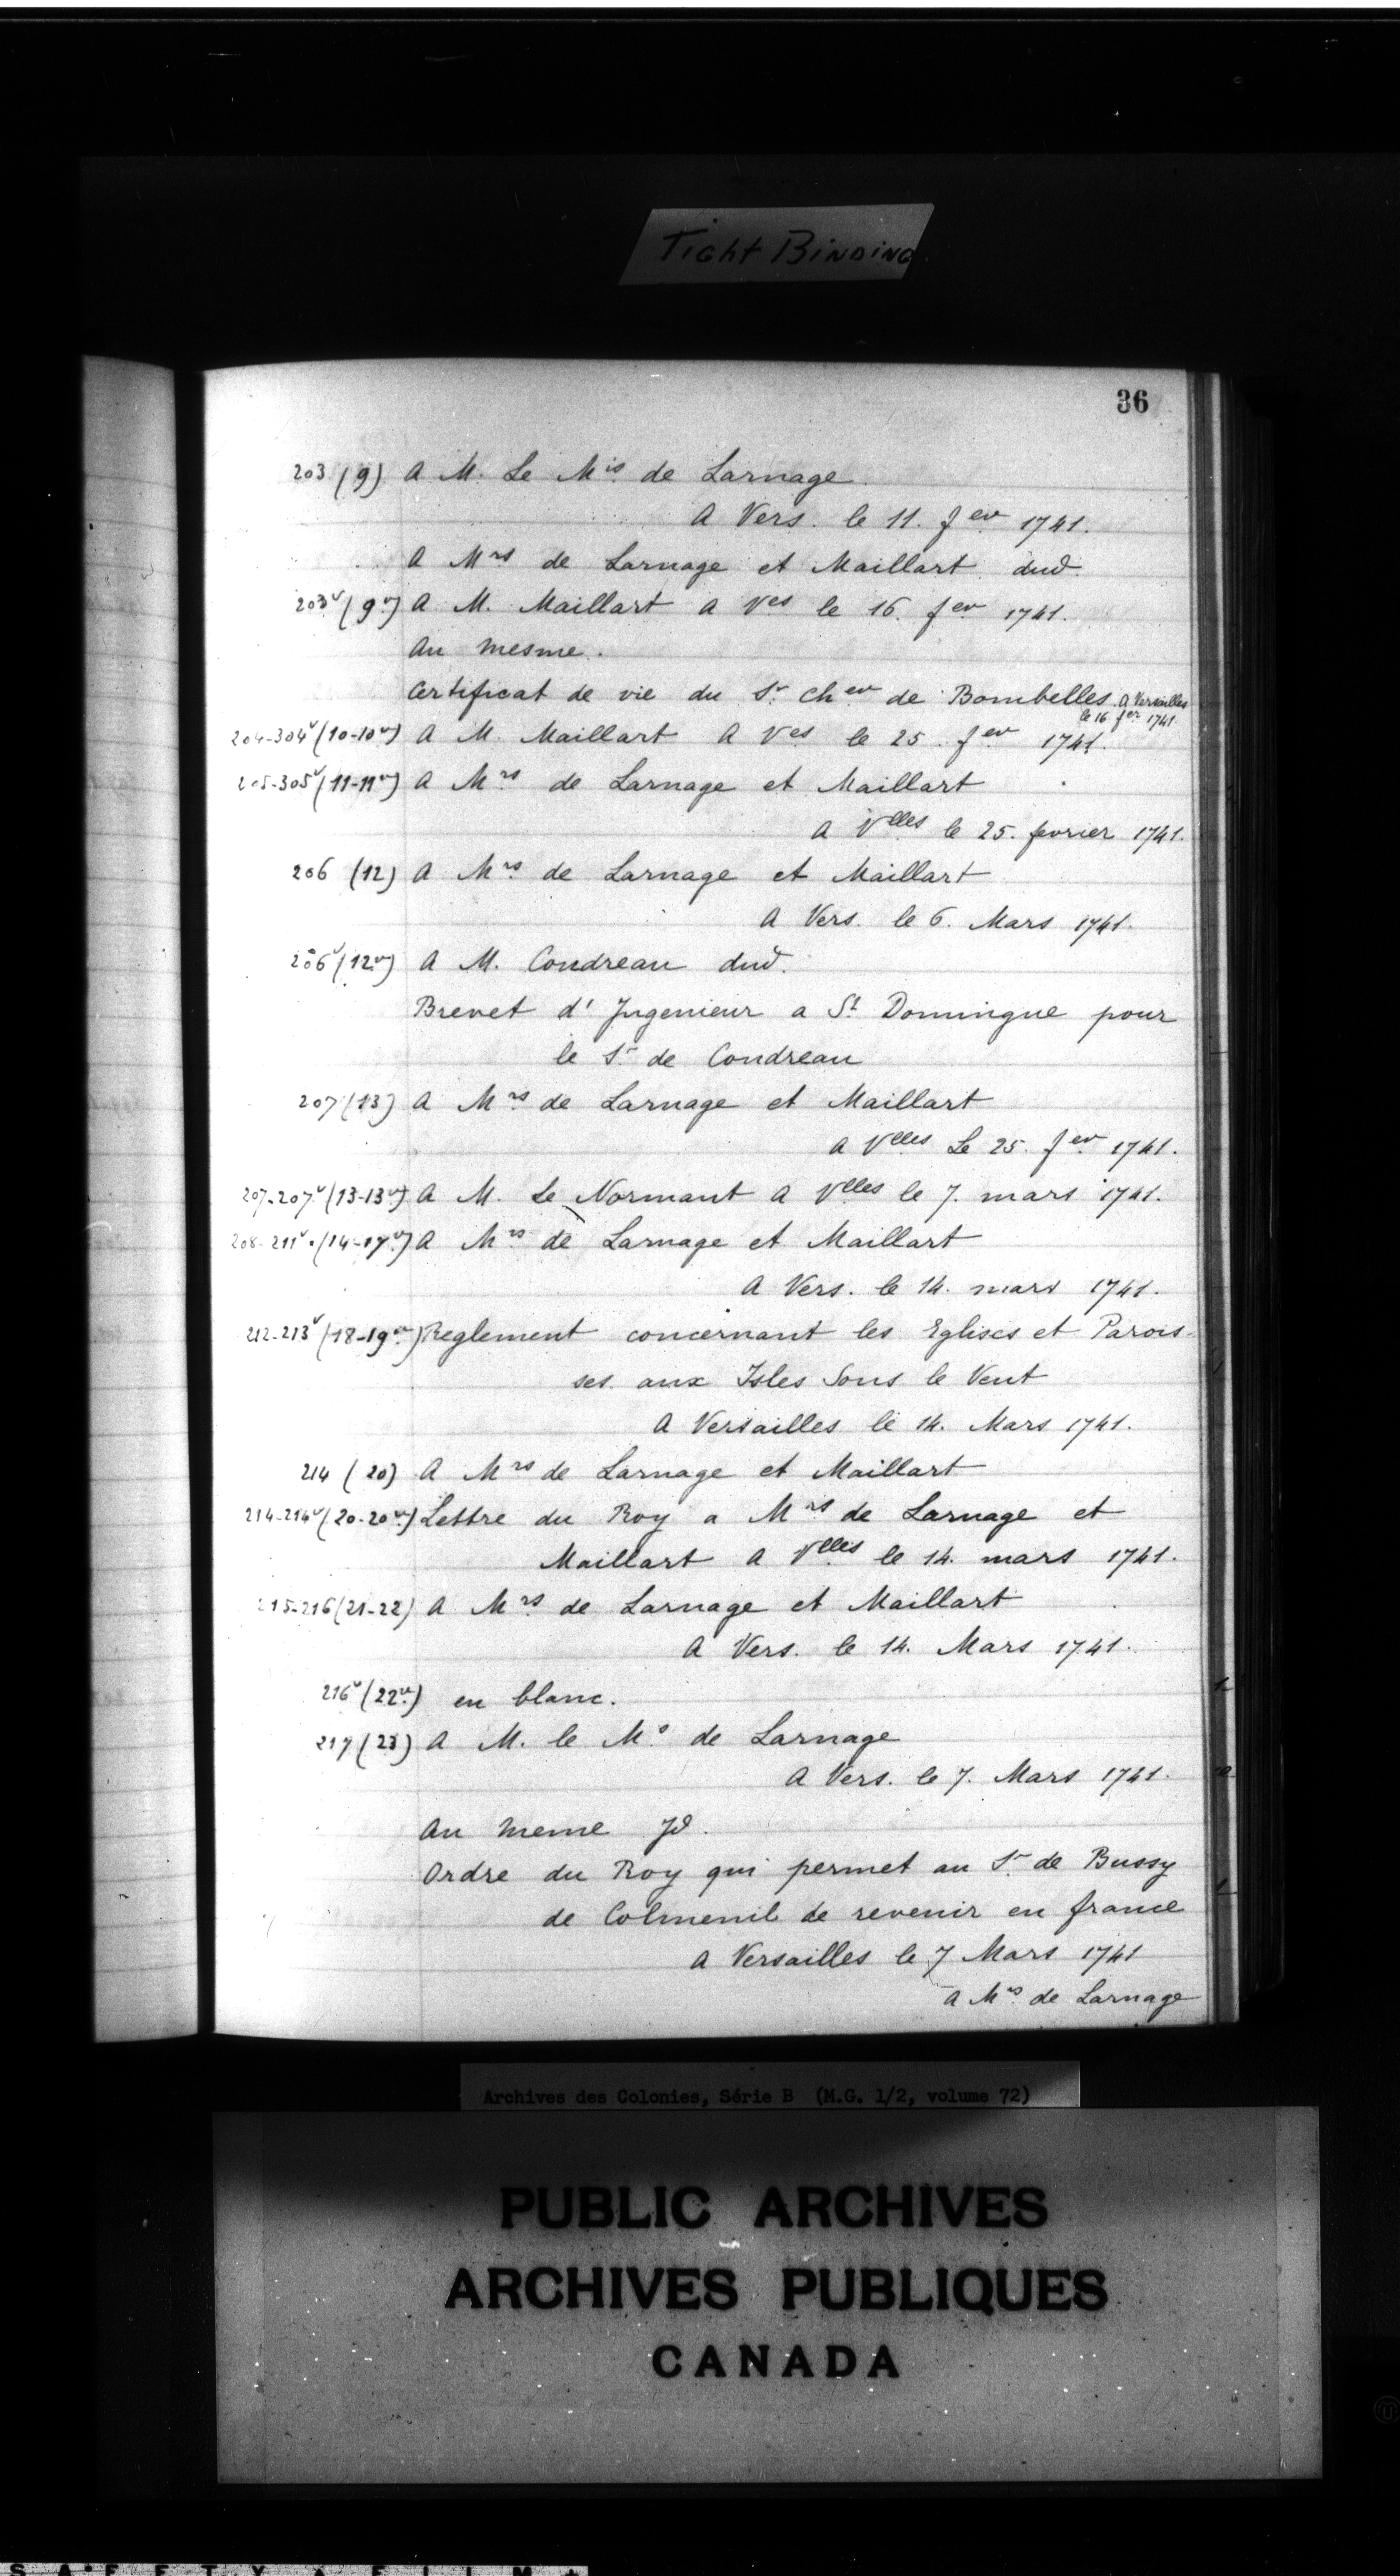 Tight Binding
36
203 (9) A M. Le Mis de Larnage.
A Vers. le 11. fev 1741.
A Mrs de Larnage et Maillart dud.
203v (9v) A M. Maillart a Ves le 16. fev 1741.
Au mesme.
Certificat de vie du Sr Chev de Bombelles. A Versailles
le 16 fer 1741.
204-304v (10-10v) A M. Maillart A Ves le 25. fev 1741.
205-305v (11-11v) A Mrs de Larnage et Maillart
A Vlles le 25. fevrier 1741.
206 (12) A Mrs de Larnage et Maillart
A Vers. le 6. Mars 1741.
206v (12v) A M. Coudreau dud.
Brevet d'Ingenieur a St Domingue pour
le Sr de Coudreau
207 (13) A Mrs de Larnage et Maillart
A Vlles Le 25. fev 1741.
207-207v (13-13v) A M. Le Normant A Vlles le 7. mars 1741.
208-211v. (14-17v) A Mrs de Larnage et Maillart
A Vers. le 14. mars 1741.
212-213v (18-19v) Reglement concernant les Eglises et Parois-
ses aux Isles Sous le Vent
A Versailles le 14. Mars 1741.
214 (20) A Mrs de Larnage et Maillart
214-214v (20-20v) Lettre du Roy a Mrs de Larnage et
Maillart A Vlles le 14. mars 1741.
215-216 (21-22) A Mrs de Larnage et Maillart
A Vers. le 14. Mars 1741.
216v (22v) en blanc.
217 (23) A M. le Ms de Larnage
A Vers. le 7. Mars 1741.
Au meme Jd.
Ordre du Roy qui permet au Sr de Bussy
de Colmenil de revenir en france
A Versailles le 7 Mars 1741
A Mrs de Larnage
Archives des Colonies, Série B (M.G. 1/2, volume 72)
PUBLIC ARCHIVES
ARCHIVES PUBLIQUES
CANADA
SAFETY FILM